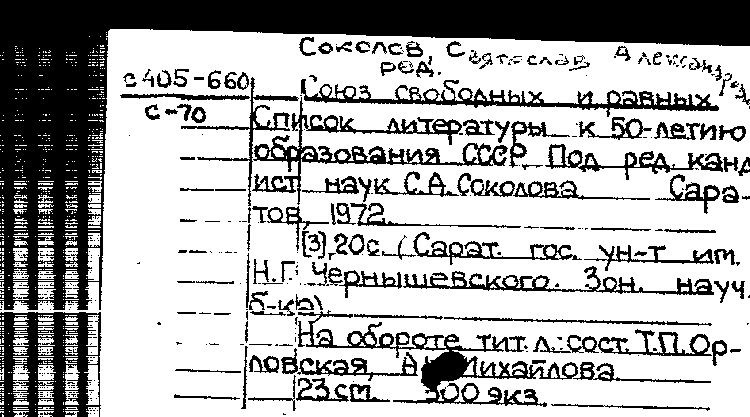 Соколов, Святослав Александров
ред.
с405-660 Союз свободных и равных.
с-70 Список литературы к 50-летию
образования СССР. Под ред. канд
ист. наук С.А. Соколова. Сара-
тов, 1972.
[3], 20с. (Сарат. гос. ун-т им.
Н.Г. Чернышевского. Зон. науч.
б-ка).
На обороте тит. л.: сост. Т.П. Ор-
ловская, Михайлова.
23см. 300 экз.